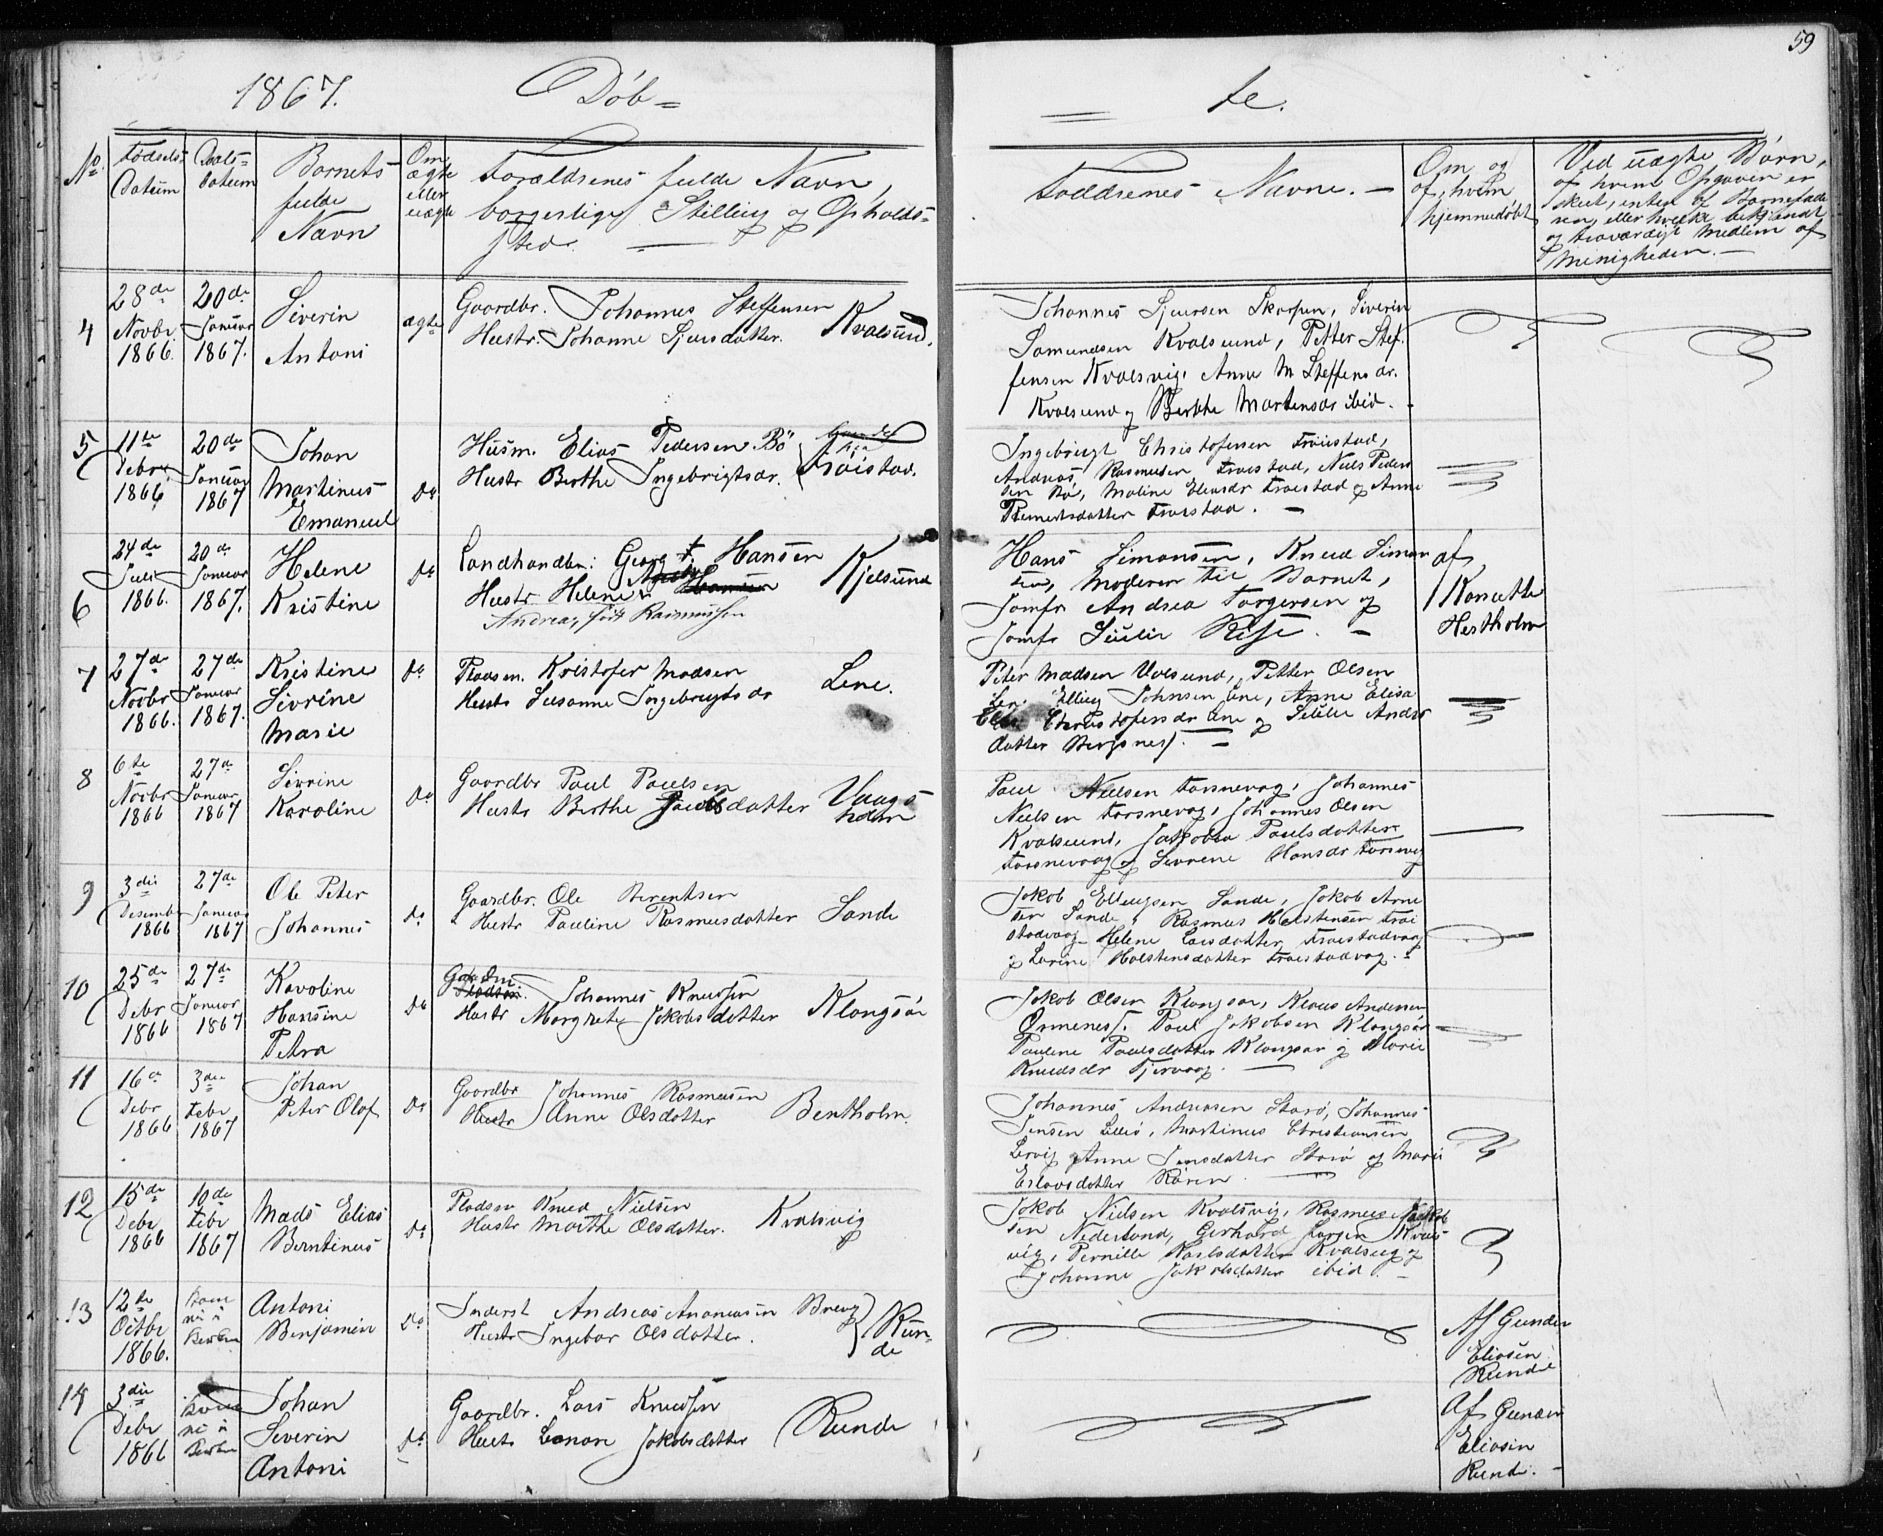 59
1867. Døb= te.
No
Fødsels Datum
Daabs= datum
Barnets fulde Navn
Om ægte eller uægte
Forældrenes fulde Navn, borgerlige Stilling og Opholds= sted.
Faddrenes Navne. —
Om og af hvem hjemmedøbt
Ved uægte Børn, af hvem Opgaven er skeet, enten af Barnefade ren, eller hvilke bekjendt og troværdigt Medlem af Menigheden. —
4
28de Novbr 1866.
20de Januar 1867.
Siverin Antoni
ægte
Gaardbr. Johannes Steffensen
Hustr. Johanne Sjursdatter.
Kvalsund.
Johannes Sjursen Skorpen, Siverin
Samundsen Kvalsund, Petter Stef.
fensen Kvalsvig. Anne M Steffensdr.
Kvalsund og Berthe Martensdr ibid.
5
11te Debr 1866
20de Januar 1867
Johan Martinus Emanuel
Do
Husm. Elias Pedersen Bö
Hustr Berthe Ingebrigtsdr.
Froistad.
Ingebrigt Christofersen Froistad,
Andreas Rasmusen Froistad, Niels Peder
sen Bø, Maline Eliasdr Froistad og Anne
Reinertsdatter Froistad. —
6
24de Juli 1866.
20de Januar 1867.
Helene Kristine
Do
Landhandler: Georg F. Hansen
Hustr Helene
Andrea, født Rasmussen
Kjelsund
Hans Simonsen, Knud Simon
sen, Moderen til Barnet,
Jomfr Andrea Torgersen og
Jomfr Julie Riise. —
af Hestholm
7
27de Novbr 1866.
27de Januar 1867.
Kristine Sivrine Marie
Do
Pladsm. Kristofer Madsen
Hustr Susanne Ingebrigtsdr
Leine.
Peter Madsen Valsund, Petter Olsen
Elling Johnsen Lene, Anne Elisa
Christofersdr Lene og Andrs
datter Bergsnes. —
8
6te Novbr 1866
27de Januar 1867
Sivrine Karoline
Do
Gaardbr Paul Paulsen
Hustr Berthe datter
Vaags holm
Paul Nielsen Torsnevag, Johannes
Nielsen Torsnevag, Johannes Olsen
Kvalsund, Jakobea Paulsdatter
Torsnevaag og Sivrene Hansdr
9
3die Desembr 1866
27de Januar 1867
Ole Peter Johannes
Do
Gaardbr. Ole Berentsen
Hustr Pauline Rasmusdatter
Sande
Jakob Ellingsen Sande, Jakob Arne
sen Sande, Rasmus Holstensen Froi
stadvaag Helene Larsdatter Froistadvaag
og Larine Holstensdatter Froistadvag. —
10
25de Debr 1866
27de Januar 1867
Karoline Hansine Petra
Do
Johannes Knudsen
Hustr Margrete Jakobsdatter
Klongsør
Jakob Olsen Klongsør, Klaus Andersen
Ørmenes. Paul Jakobsen Klongsør
Pauline Paulsdatter Klongsør og Marie
Knudsdr Tjervaag. —
11
16de Debr 1866
3die Febr 1867
Johan Peter Olaf
Do
Gaardbr Johannes Rasmusen
Hustr Anne Olsdatter
Bentholm.
Johannes Andreasen Storø, Johannes
Jensen Lillø, Martinus Christiansen
Lervig Anne Jensdatter Storø og Marie
Erlandsdatter Røren. —
12
15de Debr 1866
10de Febr 1867
Mads Elias Berntinus
Do
Pladsm Knud Nielsen
Hustr Marthe Olsdatter.
Kvalsvig
Jakob Nielsen Kvalsvig, Rasmus Jakob
sen Nederland, Gerhard Larsen Kvals
vig, Pernille Karlsdatter Kvalsvig og
Johanne Jakobsdatter ibid. —
13
12te Octbr 1866.
Antoni Benjamin
Do
Inderst Andreas Ananiasen
Hustr Ingebor Olsdatter.
Run= de
Af Gunder Eliasen Runde
14
3die Debr 1866
Johan Severin Antoni
Do
Gaardbr. Lars Knudsen
Hustr Jakobsdatter
Runde
Af Gunder Eliasen Runde. —